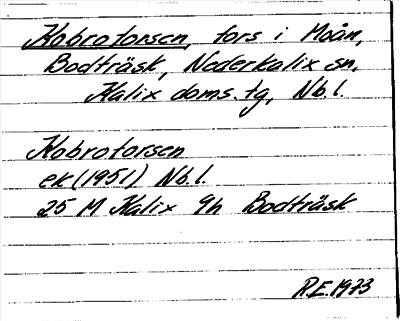 Kobroforsen, fors i Moån,
Bodträsk, Nederkalix sn,
Kalix doms.tg, Nb.l.
Kobroforsen
ek (1951) Nb.l.
25 M Kalix 9h Bodträsk
R.E. 1973